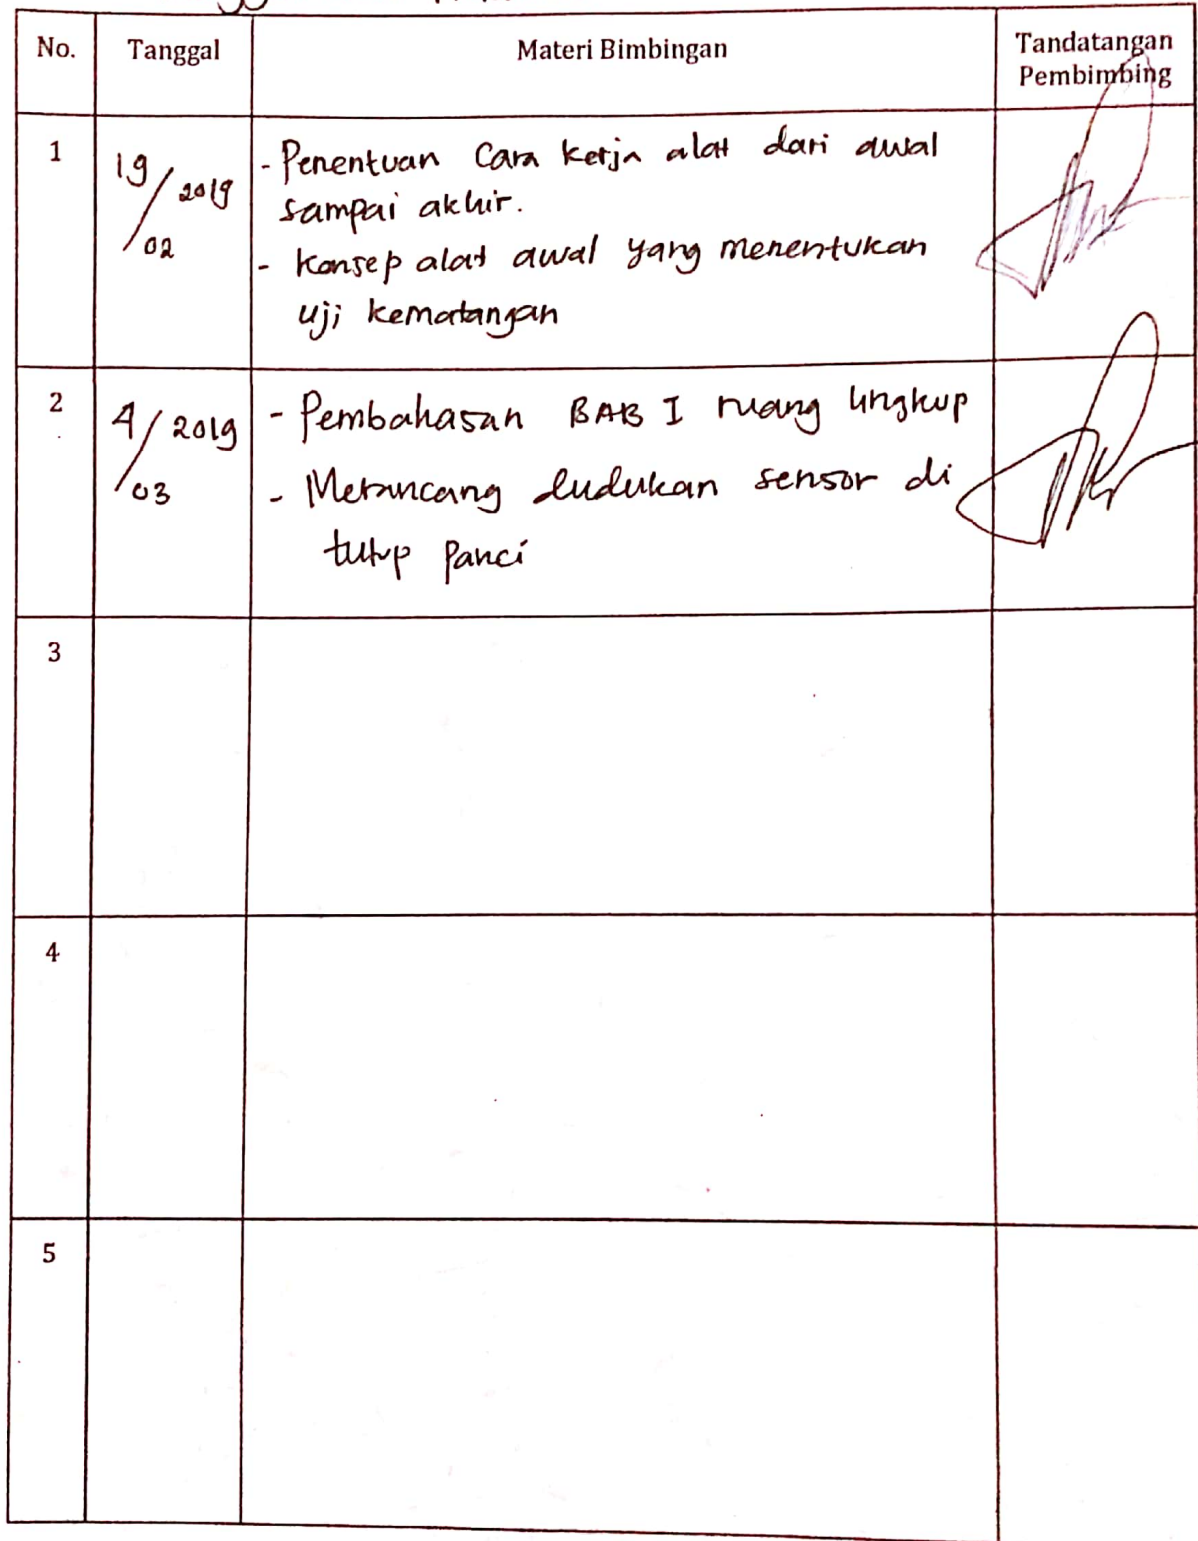 No. Tanggal Materi Bimbingan Tandatangan
Pembimbing
1 19/02 2019 - Penentuan Cara kerja alat dari awal
sampai akhir.
- Konsep alat awal yang menentukan
uji kematangan
2 4/03 2019 - Pembahasan BAB I ruang lingkup
- Merancang dudukan sensor di
tutup Panci
3
4
5